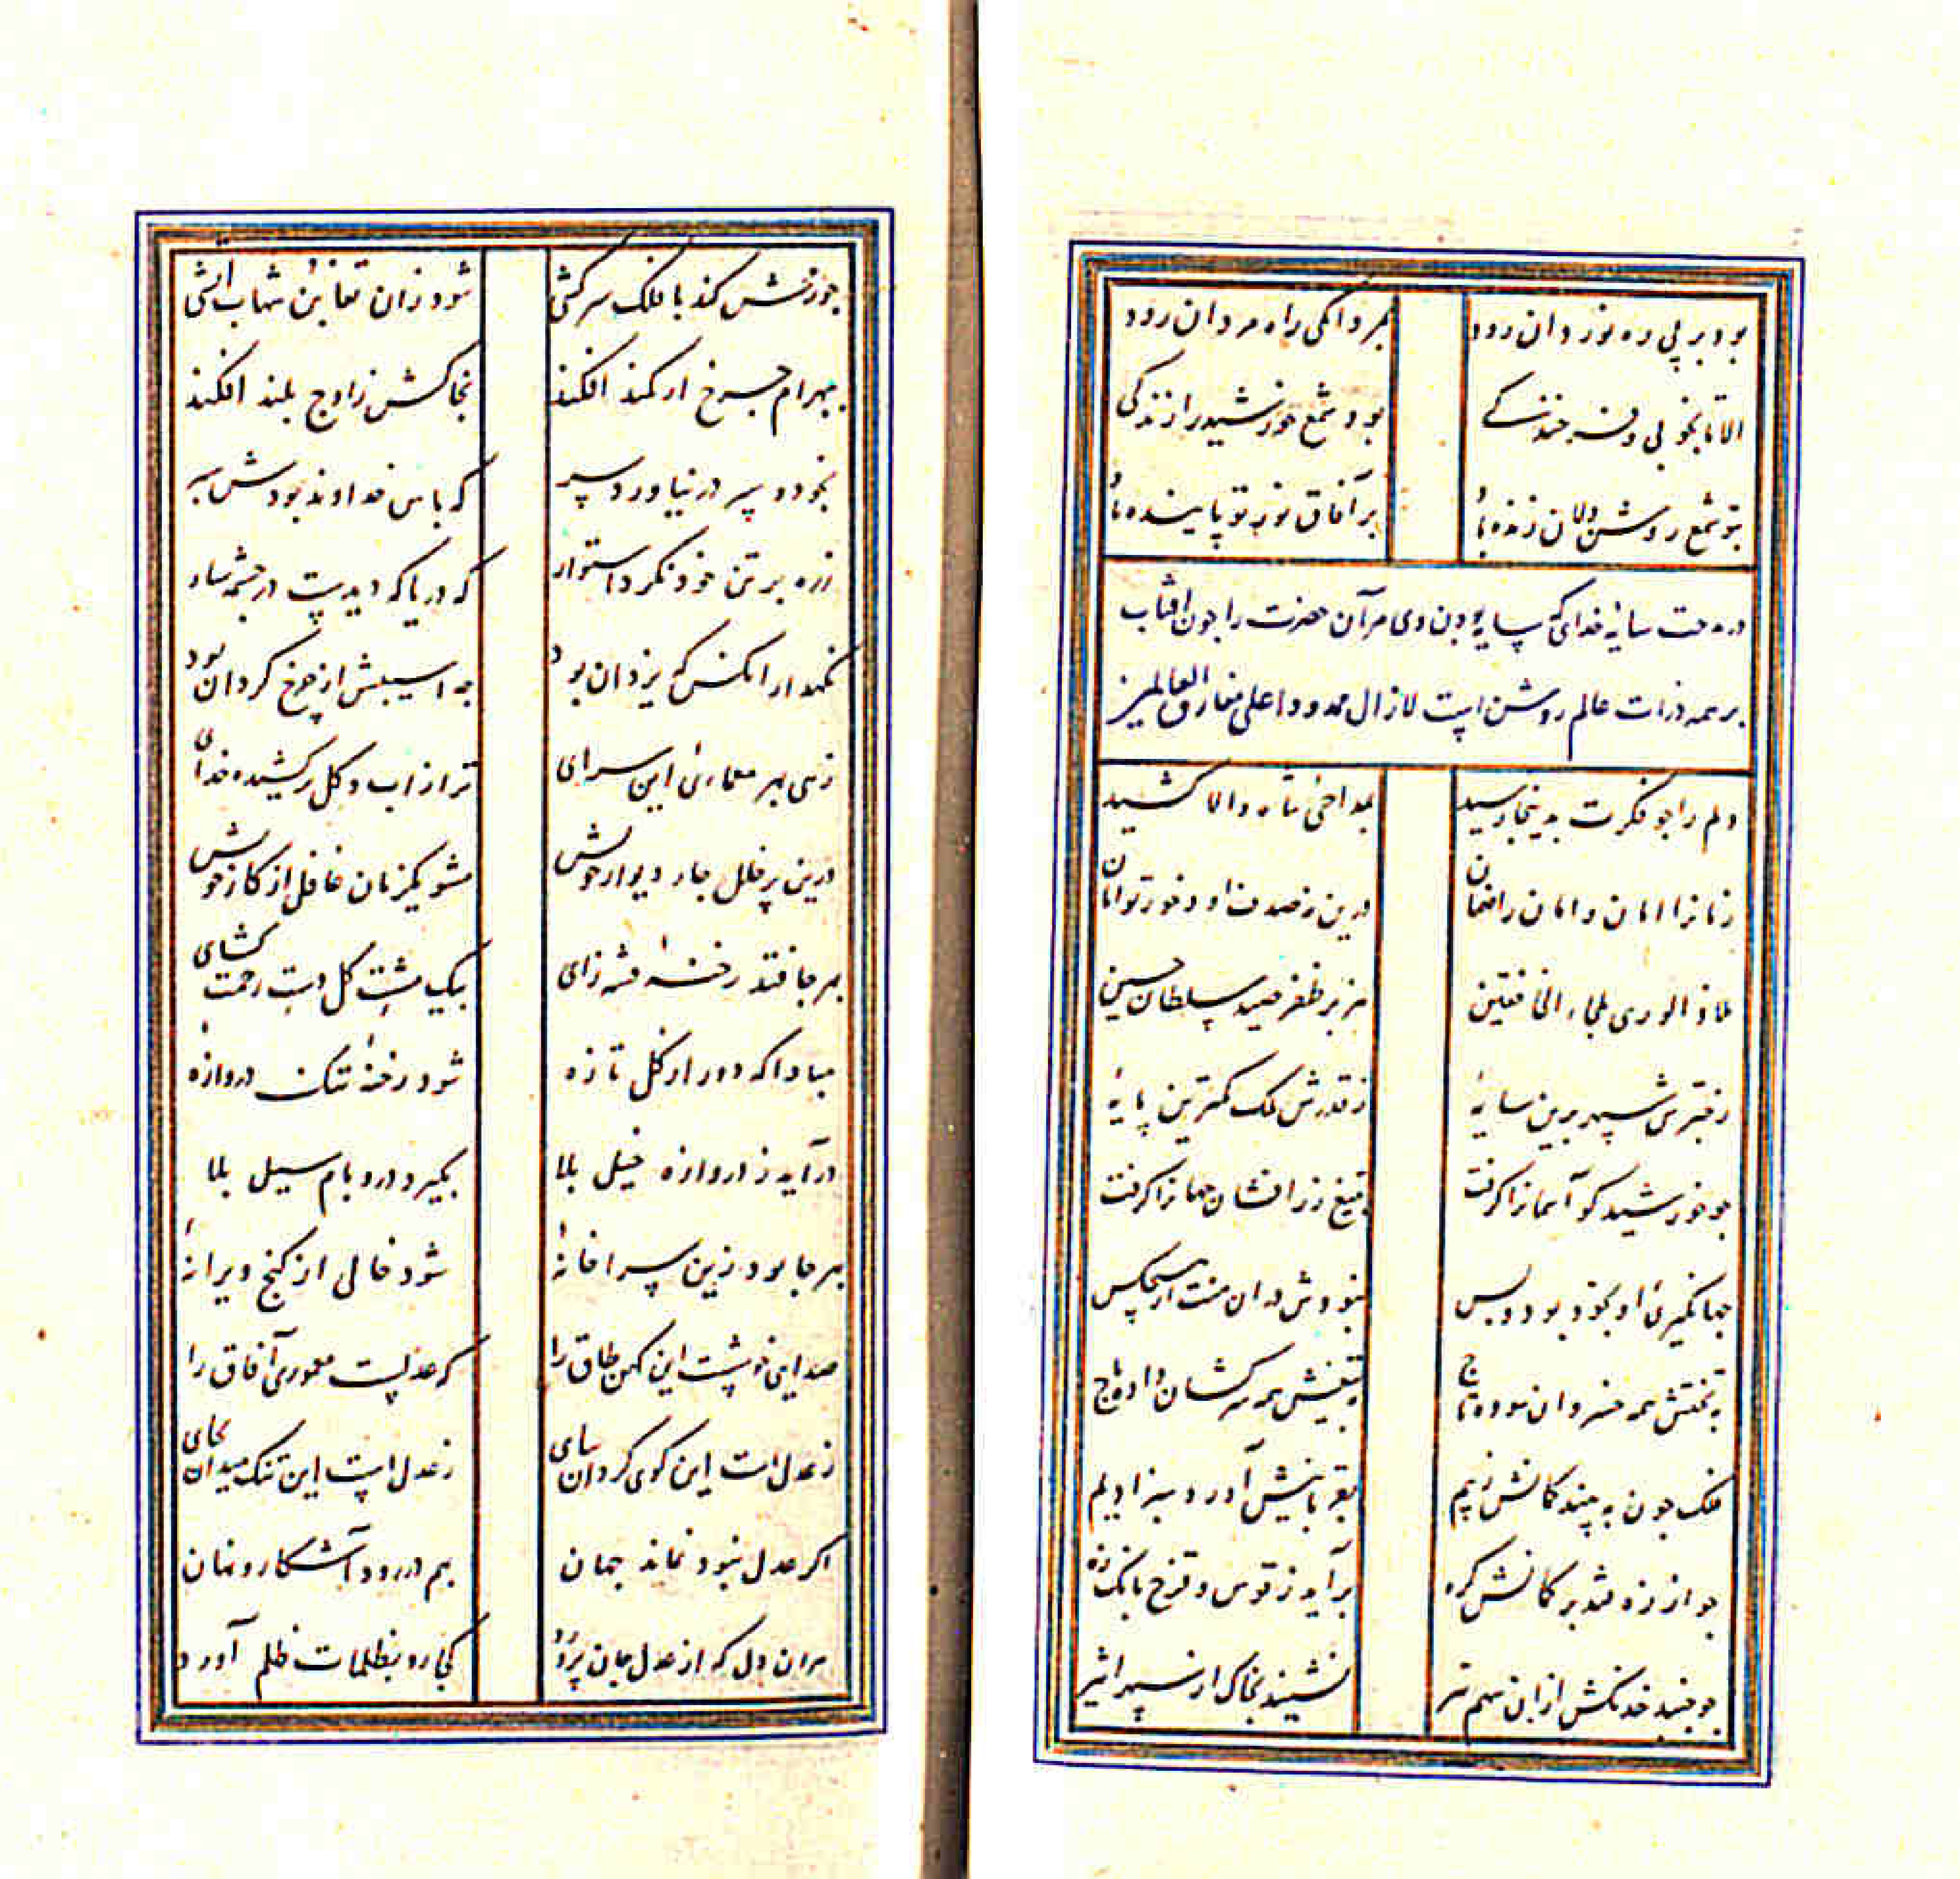 بود بر پی ره نوردان رود
بمردانگی راه مردان رود
الا تا بخوبی و فرخندگی
بود شمع خورشید را زندگی
بتو شمع روشن دلان زنده باد
بر آفاق نور تو پاینده باد
در مدحت سایه خدای که سایه بودن وی مر آن حضرت را چون آفتاب
بر همه ذرات عالم روشن است لازال ممدودا علی مفارق العالمین
دلم را چو فکرت بدینجا رسید
بمداحی شاه والا کشید
زمانرا امان و امان را ضمان
درین نه صدف او و خور توامان
ملاذ الوری ملجاء الخافقین
هزبر ظفر صید سلطان حسین
ز چترش سپهر برین سایهٔ
ز قدرش فلک کمترین پایهٔ
چو خورشید کو آسمانرا گرفت
بتیغ زرافشان جهانرا گرفت
جهانگیری او بخود بود و بس
نبودش در آن منت از هیچکس
به تختش همه خسروان سوده تاج
به تیغش همه سرکشان داده باج
فلک چون به بیند کمانش ز بیم
بقربانیش آورد میزا دیم
چو از زه فتد بر کمانش گره
بر آید ز قوس و قزح بانک زه
چو جنبد خدنگش از آن سهم تیر
نشیند بخاک از سپهر اثیر
چو رخشش کند با فلک سرکشی
شود زان تفا بن شهاب آتشی
ببهرام چرخ ار کمند افکند
بخاکش ز اوج بلند افکند
بخود و سپر در نیاورد سر
که پاس خداوند بودش سپر
زره بر تن خود نکرد استوار
که دریا که دیدست در چشمه سار
نگهدار آنکس که یزدان بود
چه آسیبش از چرخ گردان بود
زهی بهر معماری این سرای
ترا از آب و گل برکشیده خدای
درین پر خلل چار دیوار خویش
مشو یکزمان غافل از کار خویش
بهر جا فتد رخنهٔ فتنه زای
بیک مشت گل دست رحمت گشای
مبادا که دور از گل تازهٔ
شود رخنهٔ تنک دروازهٔ
در آید ز دروازه خیل بلا
بگیرد در و بام سیل بلا
بهر جا بود زین سرا خانهٔ
شود خالی از گنج ویرانهٔ
صدایی خوشست این کهن طاق را
که عدلست معموری آفاق را
ز عدل است این گوی گردان بپای
ز عدل است این تنک میدان بجای
اگر عدل نبود نماند جهان
بهم در رود آشکار و نهان
هر آن دل که از عدل جان پرورد
کجا رو بظلمات ظلم آورد